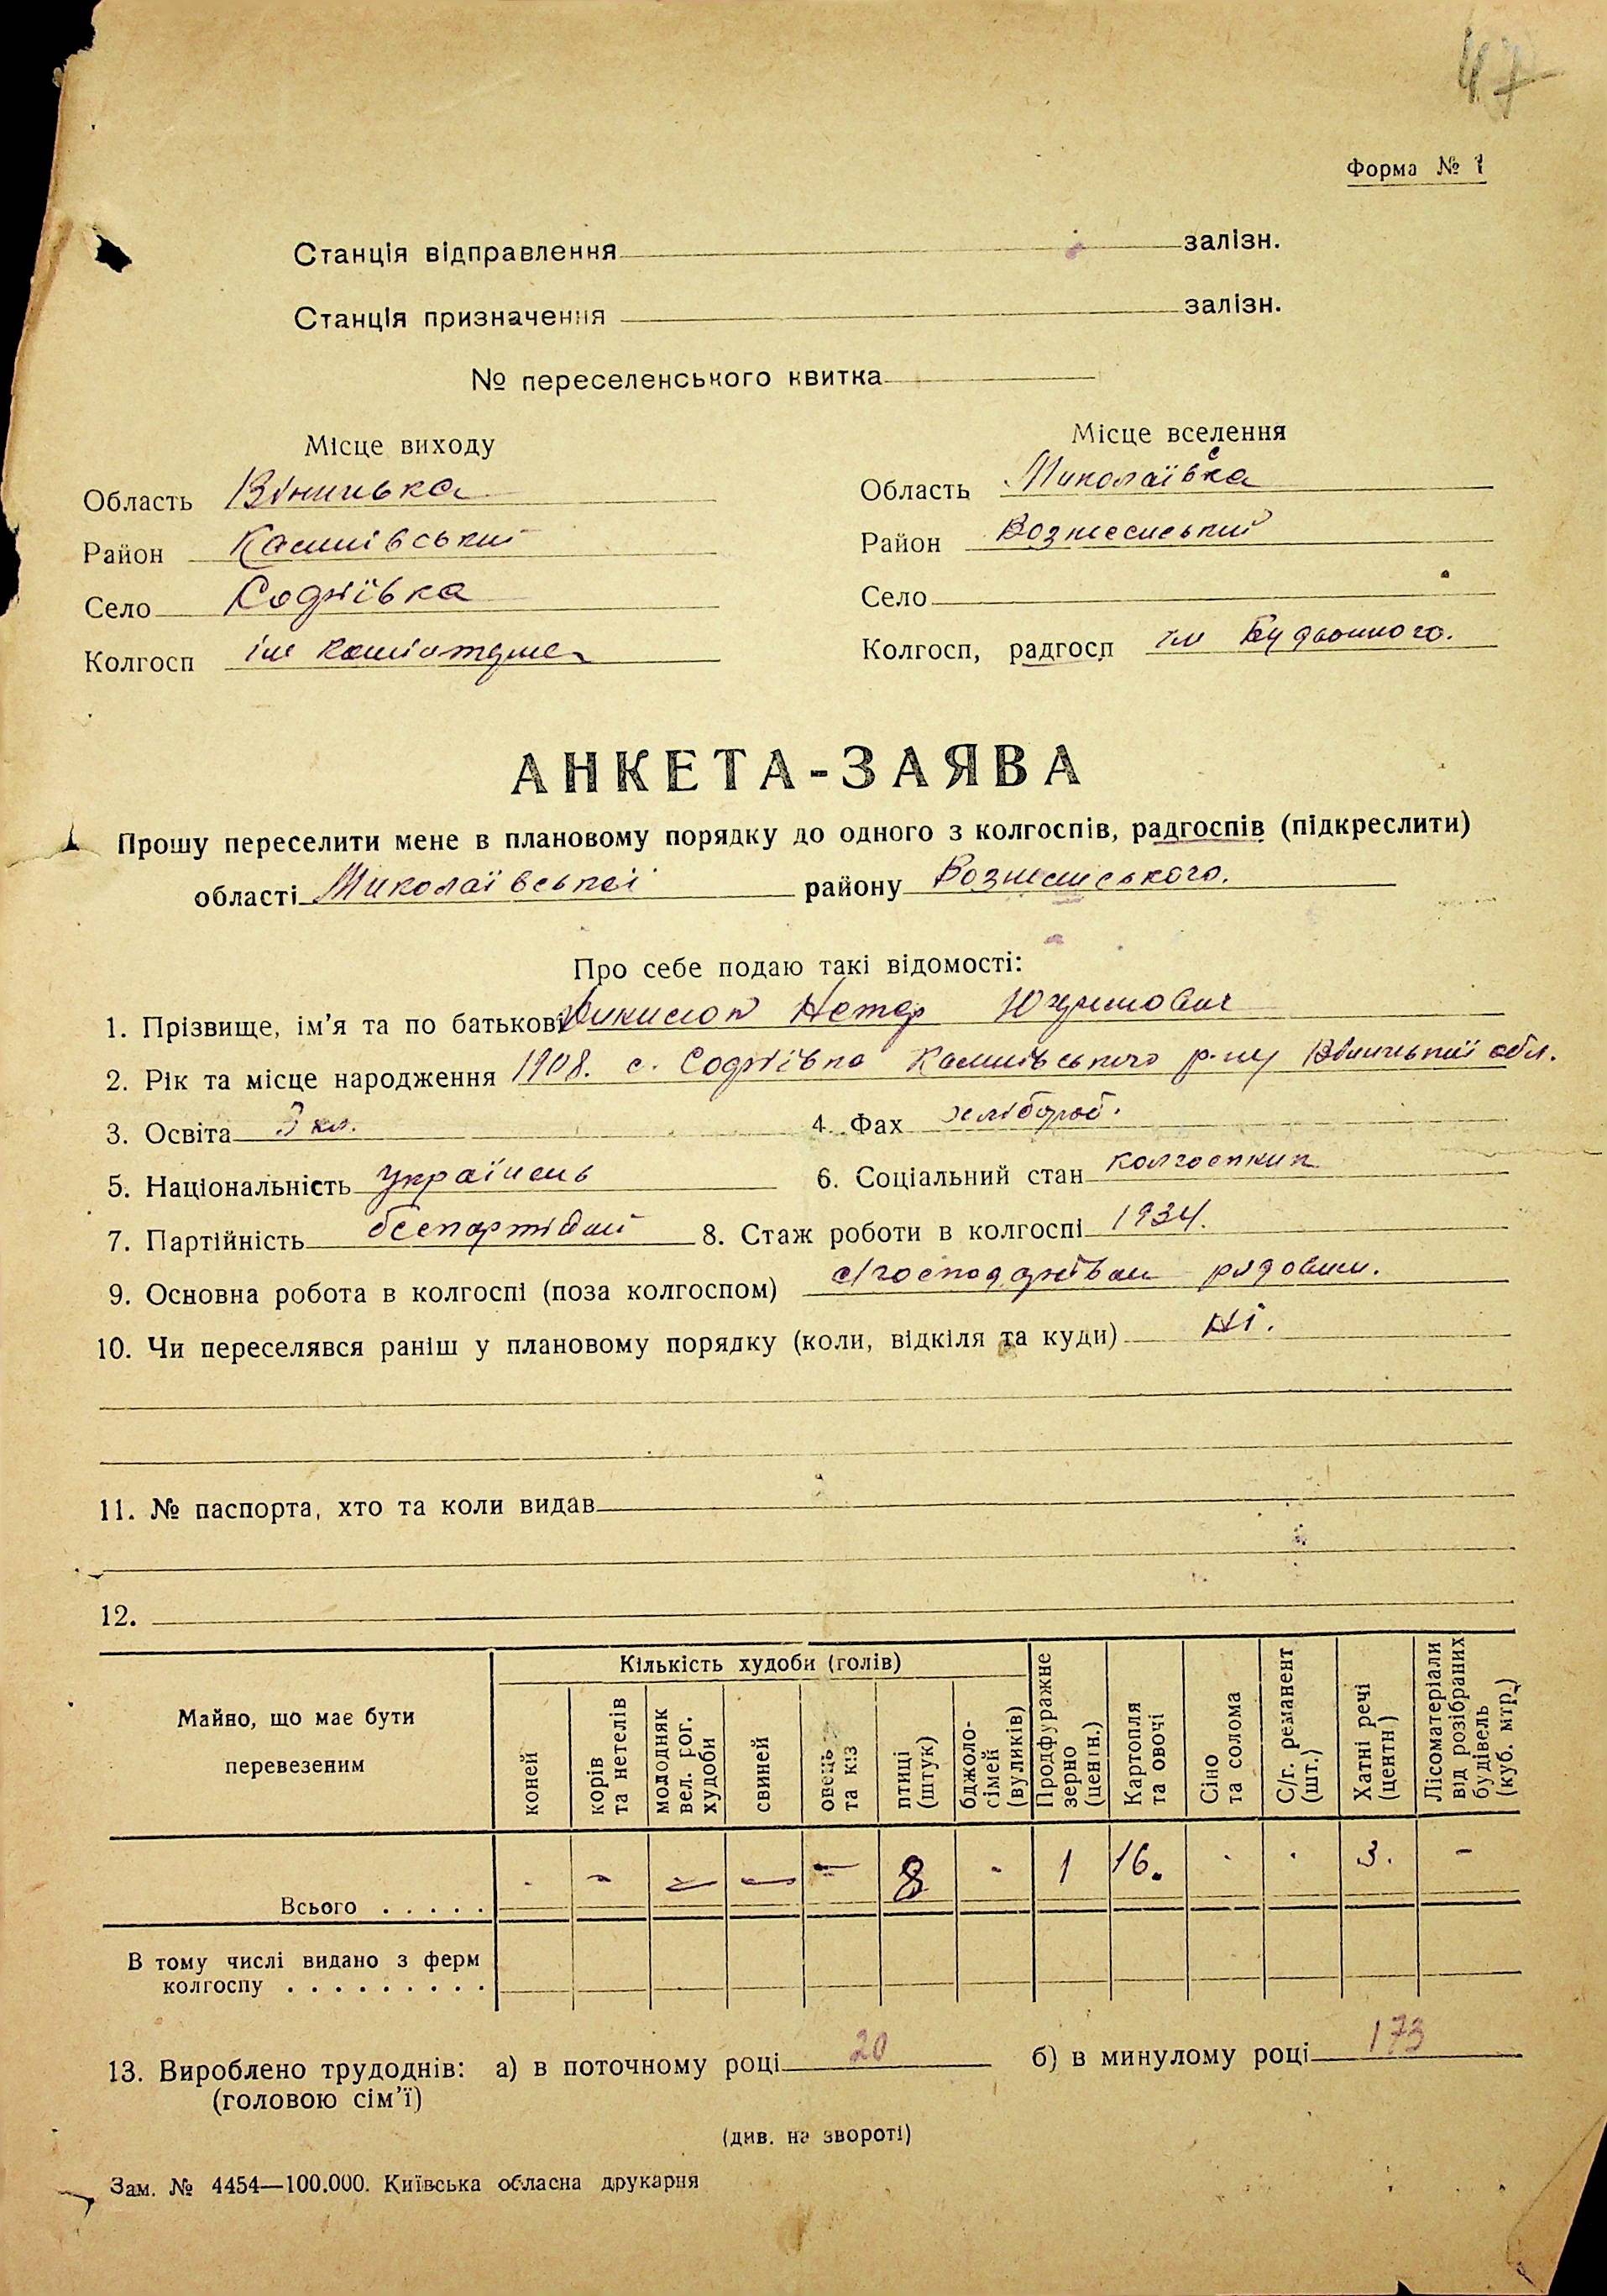 47
Форма № 1
Станція відправлення залізн.
Станція призначення залізн.
№ переселенського квитка
Місце виходу Місце вселення
Область Віницька Область Миколаївська
Район Район Вознесенський
Село Село
Колгосп ім Комінтерна Колгосп, радгосп ім Будьонного.
АНКЕТА-ЗАЯВА
Прошу переселити мене в плановому порядку до одного з колгоспів, радгоспів (підкреслити)
області Миколаївської району Вознесенського.
Про себе подаю такі відомості:
1. Прізвище, ім'я та по батькові
2. Рік та місце народження 1908. с. р-ну обл.
3. Освіта 3 кл. 4. Фах хлібороб.
5. Національність українець 6. Соціальний стан колгоспник
7. Партійність 8. Стаж роботи в колгоспі 1934.
9. Основна робота в колгоспі (поза колгоспом) рядовим.
10. Чи переселявся раніш у плановому порядку (коли, відкіля та куди) Ні.
11. № паспорта, хто та коли видав
12.
Майно, що має бути перевезеним
Кількість худоби (голів)
коней
корів та нетелів
молодняк вел. рог. худоби
свиней
овець та кіз
птиці (штук)
бджоло-сімей (вуликів)
Продфуражне зерно (центн.)
Картопля та овочі
Сіно та солома
С/г. реманент (шт.)
Хатні речі (центн)
Лісоматеріали від розібраних будівель (куб. мтр.)
Всього . . . . . - - - - - 8 - 1 16. - - 3. -
В тому числі видано з ферм
колгоспу . . . . . . . . .
13. Вироблено трудоднів: а) в поточному році 20 б) в минулому році 173
(головою сім'ї)
(див. на звороті)
Зам. № 4454—100.000. Київська обласна друкарня